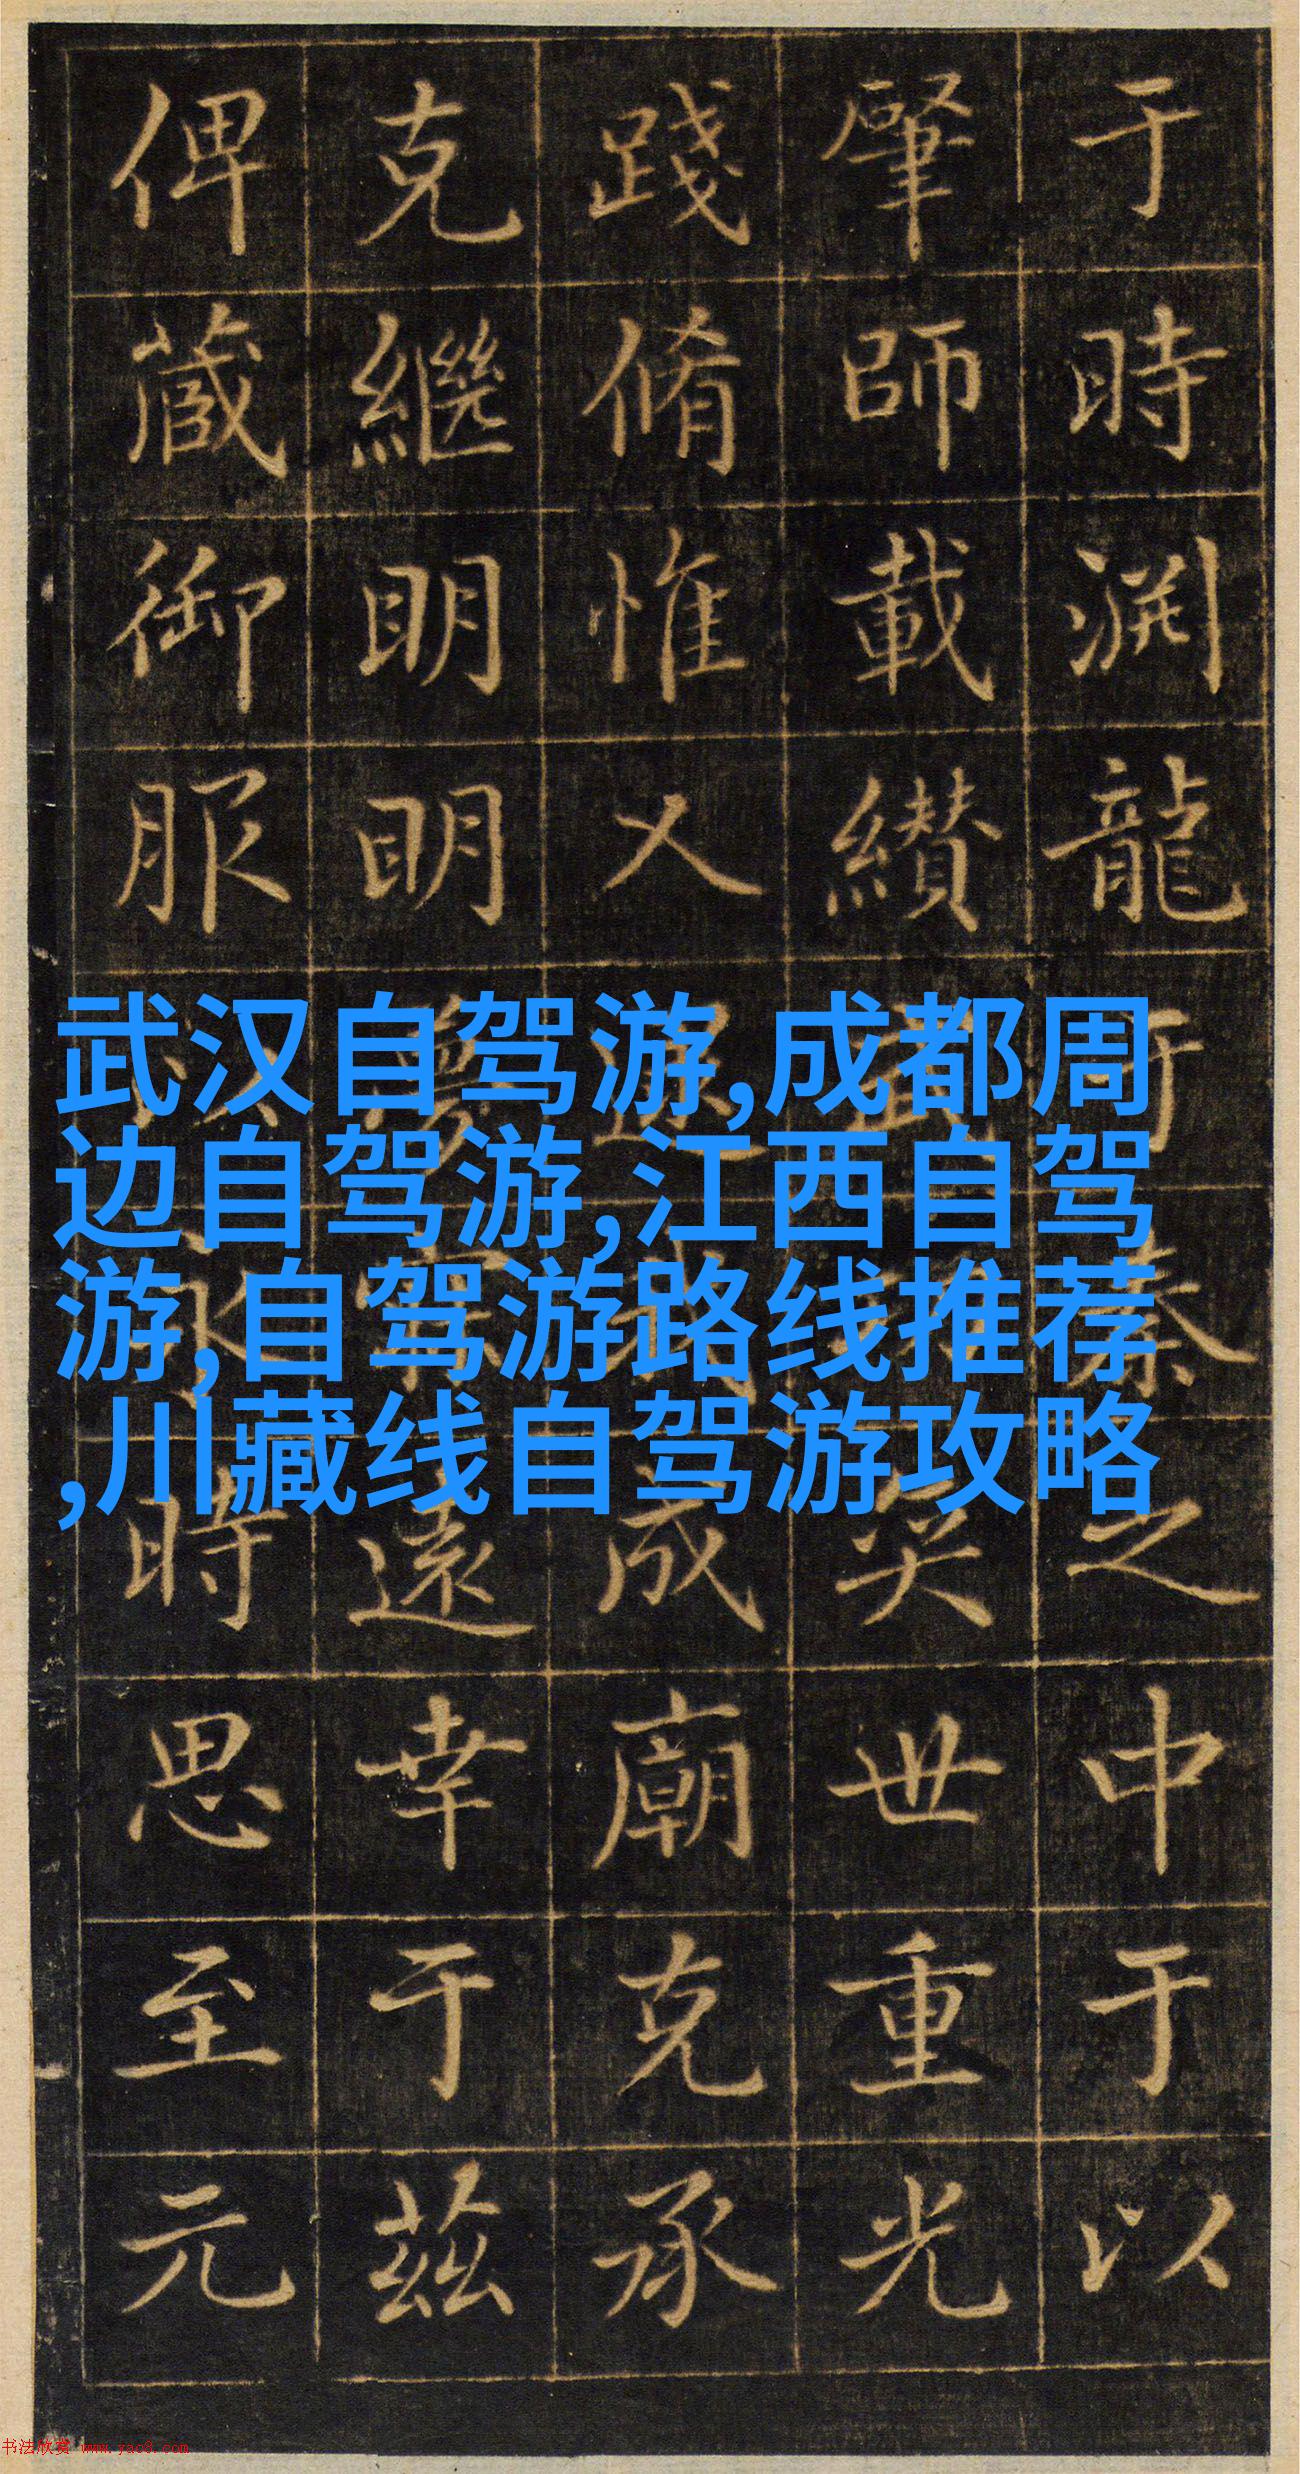 于時渊龍秦之中于以
肇師載纘奕世重光
踐脩惟乂成廟克承
克繼明明遠幸于茲
俾蔵御服永時思至元
武汉自驾游,成都周
边自驾游,江西自驾
游,自驾游路线推荐
,川藏线自驾游攻略
书法欣赏 www.yac8.com